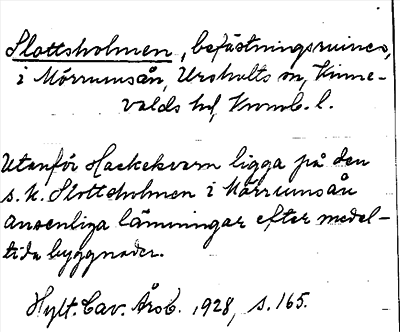 Slottsholmen, befästningsruiner,
i Mörrumsån, Urshults sn, Kinne-
valds hd, Kronob. l.
Utanför Hackekvarn ligga på den
s. k. Slottsholmen i Mörrumsån
ansenliga lämningar efter medel-
tida byggnader.
Hylt. Cav. Årsb. 1928, s. 165.